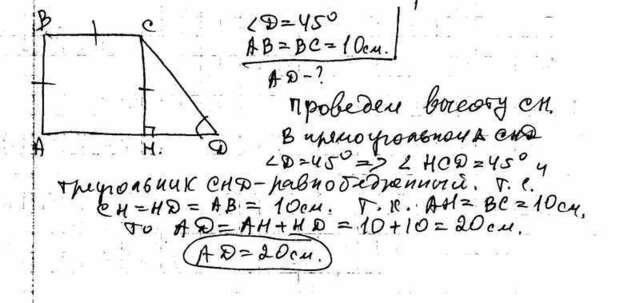 B C
∠D=45°
AB=BC=10см.
AD-?
A H. D
Проведем высоту CH.
В прямоугольном △ CHD
∠D=45° => ∠ HCD=45° и
треугольник CHD-равнобедренный. Т.е.
CH=HD=AB=10см. Т.к. AH=BC=10см,
то AD=AH+HD=10+10=20см.
AD=20см.